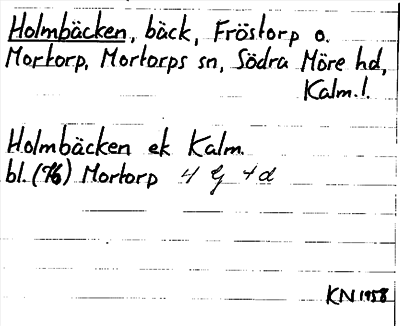 Holmbäcken, bäck, Fröstorp o.
Mortorp, Mortorps sn, Södra Möre hd,
Kalm. l.
Holmbäcken ek Kalm.
bl. (76) Mortorp 4 g 4 d
KN 1958